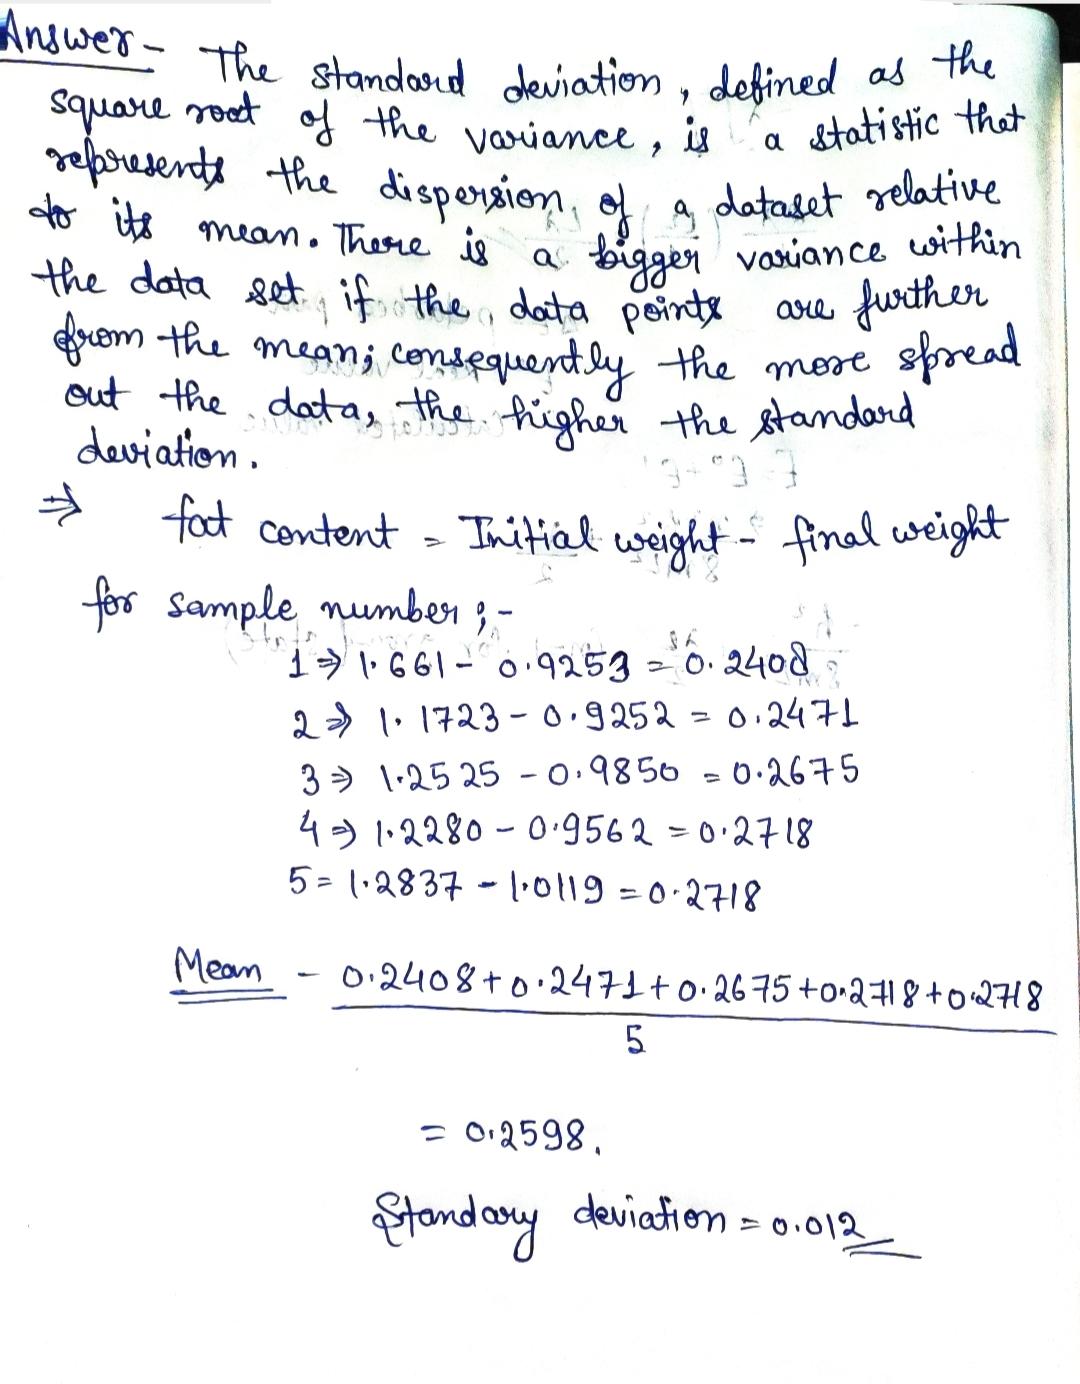 Answer - The standard deviation, defined as the
square root of the variance, is a statistic that
represents the dispersion of a dataset relative
to its mean. There is a bigger variance within
the data set if the data points are further
from the mean; consequently the more spread
out the data, the higher the standard
deviation.
⇒ fat content = Initial weight - final weight
for sample number ;-
1 ⇒ 1.661 - 0.9253 = 0.2408
2 ⇒ 1.1723 - 0.9252 = 0.2471
3 ⇒ 1.2525 - 0.9850 = 0.2675
4 ⇒ 1.2280 - 0.9562 = 0.2718
5 = 1.2837 - 1.0119 = 0.2718
Mean - 0.2408 + 0.2471 + 0.2675 + 0.2718 + 0.2718
5
= 0.2598.
Standary deviation = 0.012